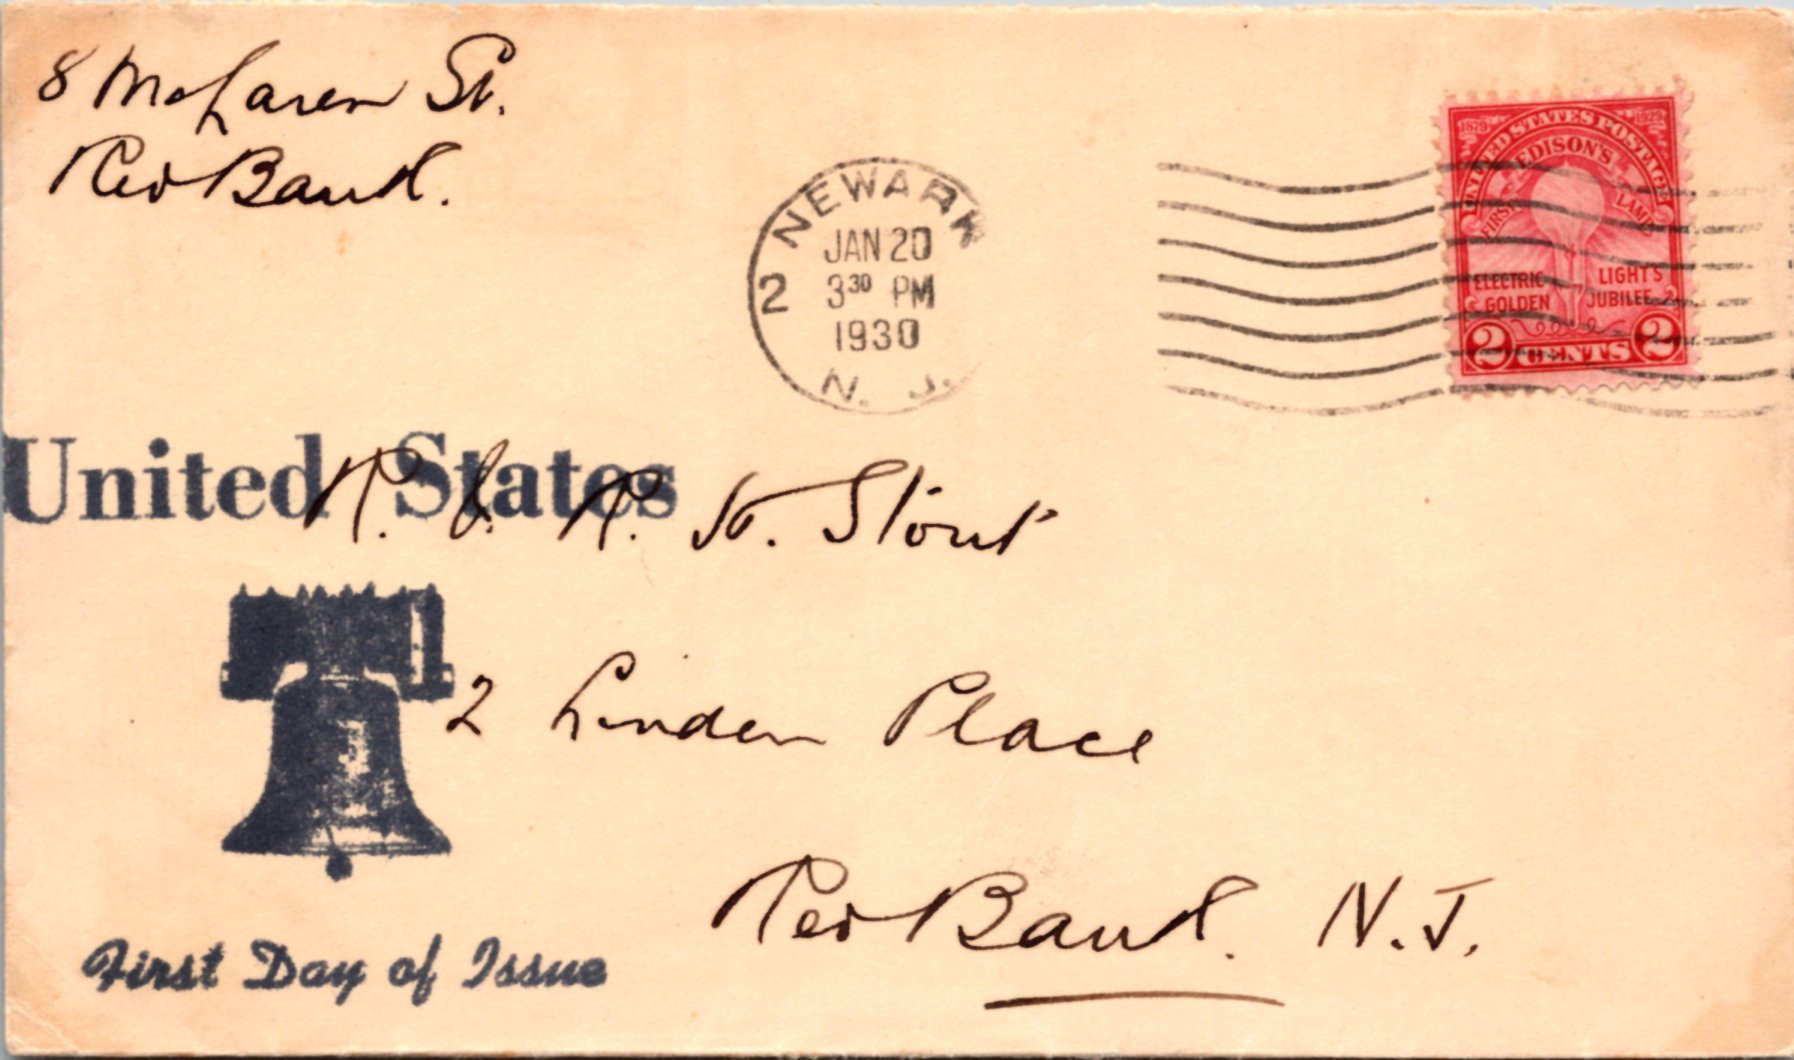 8 McLaren St.
Red Bank.
NEWARK
2
JAN 20
3 30 PM
1930
N. J.
UNITED STATES POSTAGE
1879 1929
EDISON'S
FIRST LAMP
ELECTRIC LIGHT'S
GOLDEN JUBILEE
2 CENTS 2
United States
R. St. Stout
2 Linden Place
Red Bank. N.J.
First Day of Issue